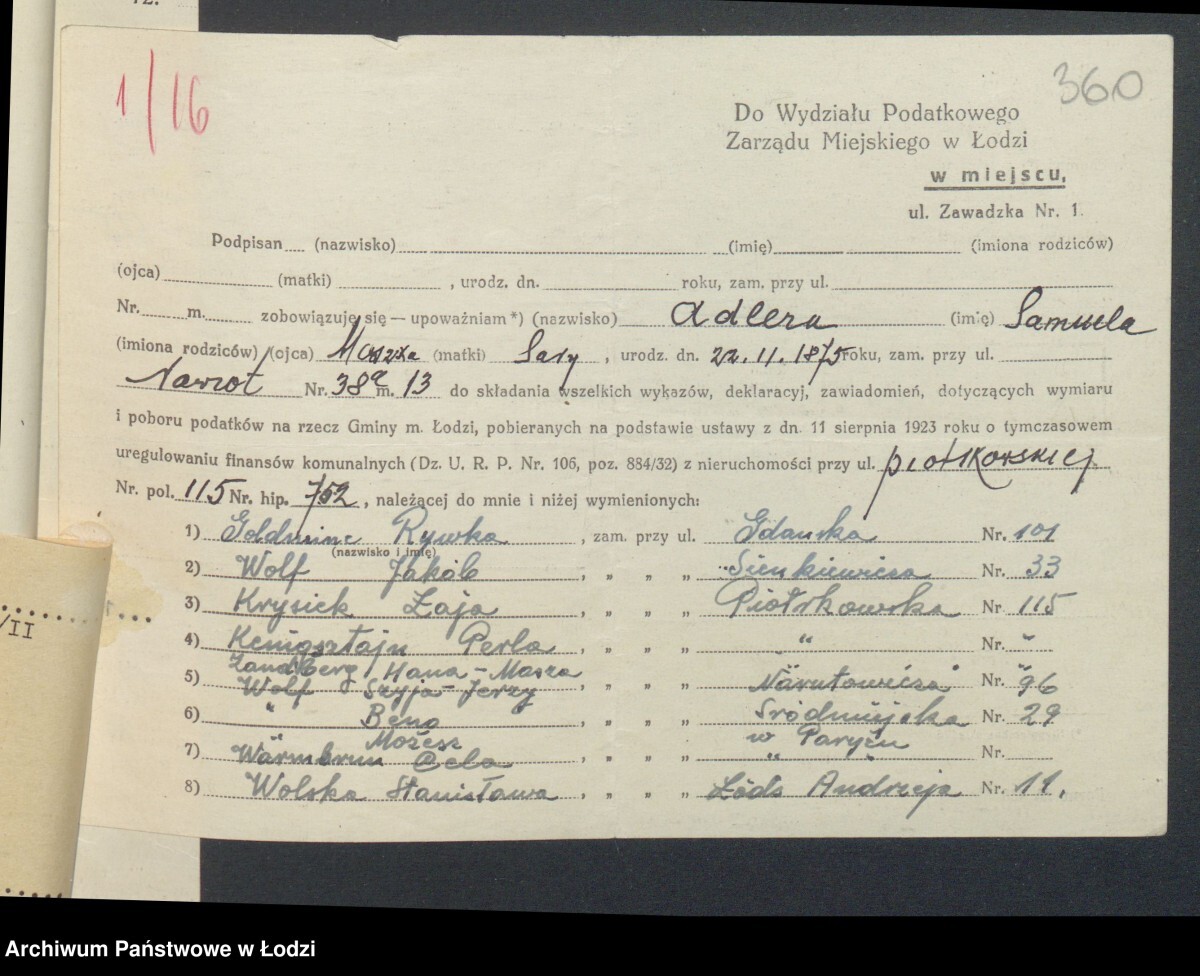 72.
1/16
360
Do Wydziału Podatkowego
Zarządu Miejskiego w Łodzi
w miejscu,
ul. Zawadzka Nr. 1.
Podpisan (nazwisko) (imię) (imiona rodziców)
(ojca) (matki) , urodz. dn. roku, zam. przy ul.
Nr. m. zobowiązuję się — upoważniam *) (nazwisko) Adlera (imię) Samuela
(imiona rodziców) (ojca) Moszka (matki) Sary , urodz. dn. 22. 11. 1875 roku, zam. przy ul.
Nawrot Nr. 38a m. 13 do składania wszelkich wykazów, deklaracyj, zawiadomień, dotyczących wymiaru
i poboru podatków na rzecz Gminy m. Łodzi, pobieranych na podstawie ustawy z dn. 11 sierpnia 1923 roku o tymczasowem
uregulowaniu finansów komunalnych (Dz. U. R. P. Nr. 106, poz. 884/32) z nieruchomości przy ul. piotrkowskiej
Nr. pol. 115 Nr. hip. 752 , należącej do mnie i niżej wymienionych:
1) Rywka , zam. przy ul. Gdańska Nr. 101
(nazwisko i imię)
2) Wolf Jakób , „ „ „ Sienkiewicza Nr. 33
3) Krysiek Łaja , „ „ „ Piotrkowska Nr. 115
4) Kenigsztajn Perla , „ „ „ " Nr. "
Zandberg Hana-Masza "
5) Wolf Szyja-Jerzy , „ „ „ Narutowicza Nr. 96
6) " Beno , „ „ „ Śródmiejska Nr. 29
" Możesz w Paryżu
7) Warmbrun Cela , „ „ „ " Nr.
8) Wolska Stanisława , „ „ „ Łódź Andrzeja Nr. 11.
/II
Archiwum Państwowe w Łodzi